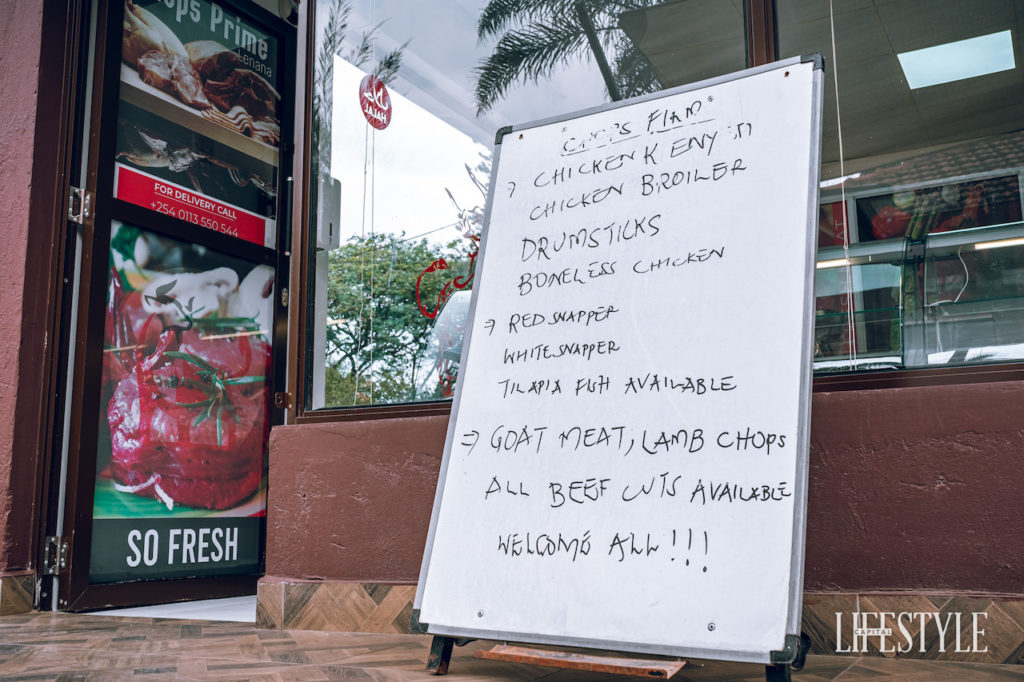 ops Prime
Lenana
FOR DELIVERY CALL
+254 0113 550 544
SO FRESH
HALAL
CHICKEN KENYJI
CHICKEN BROILER
DRUMSTICKS
BONELESS CHICKEN
⇒ RED SNAPPER
WHITE SNAPPER
TILAPIA FISH AVAILABLE
⇒ GOAT MEAT, LAMB CHOPS
ALL BEEF CUTS AVAILABLE
WELCOME ALL!!!
LIFESTYLE
CAPITAL